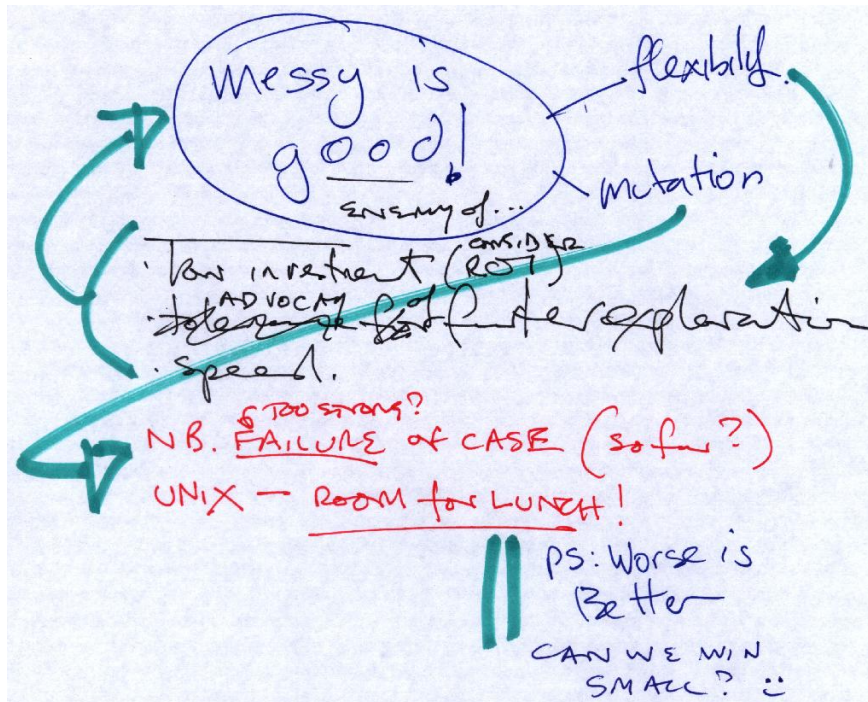 messy is
good!
flexibily
mutation
enemy of...
CONSIDER
· Low investment (ROI)
ADVOCACY of
· tolerance for further exploration
· speed.
TOO STRONG?
NB. FAILURE of CASE (so far?)
UNIX — ROOM for LUNCH!
PS: Worse is
Better
CAN WE WIN
SMALL? :)